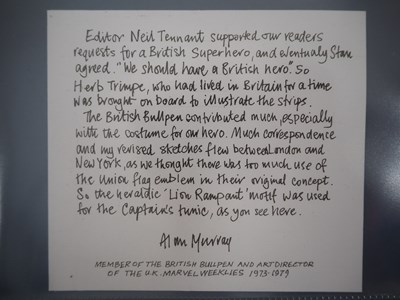 Editor Neil Tennant supported our readers
requests for a British Superhero, and eventualy Stan
agreed. "We should have a British hero". So
Herb Trimpe, who had lived in Britain for a time
was brought on board to illustrate the strips.
The British Bullpen contributed much, especially
with the costume for our hero. Much correspondence
and my revised sketches flew between London and
New York, as we thought there was too much use of
the Union flag emblem in their original concept.
So the heraldic 'Lion Rampant' motif was used
for the Captain's tunic, as you see here.
Alan Murray
MEMBER OF THE BRITISH BULLPEN AND ART DIRECTOR
OF THE U.K. MARVEL WEEKLIES 1973-1979